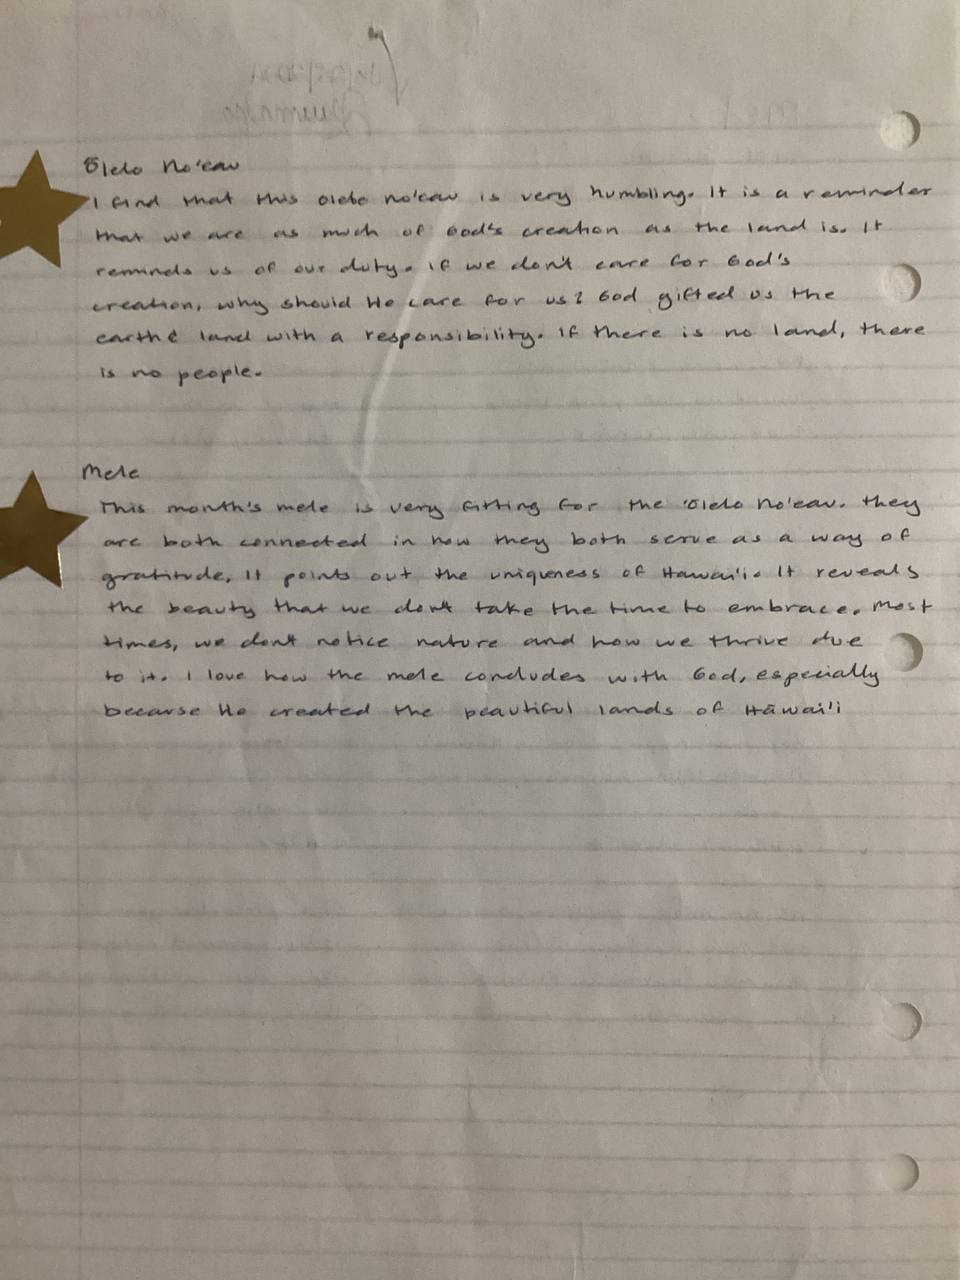 Ōlelo No'eau
I find that this olelo no'eau is very humbling. It is a reminder
that we are as much of God's creation as the land is. It
reminds us of our duty. if we don't care for God's
creation, why should He care for us? God gifted us the
earth & land with a responsibility. If there is no land, there
is no people.
Mele
This month's mele is very fitting for the 'Ōlelo No'eau. they
are both connected in how they both serve as a way of
gratitude. It points out the uniqueness of Hawai'i. It reveals
the beauty that we don't take the time to embrace. Most
times, we don't notice nature and how we thrive due
to it. I love how the mele concludes with God, especially
because He created the beautiful lands of Hāwai'i